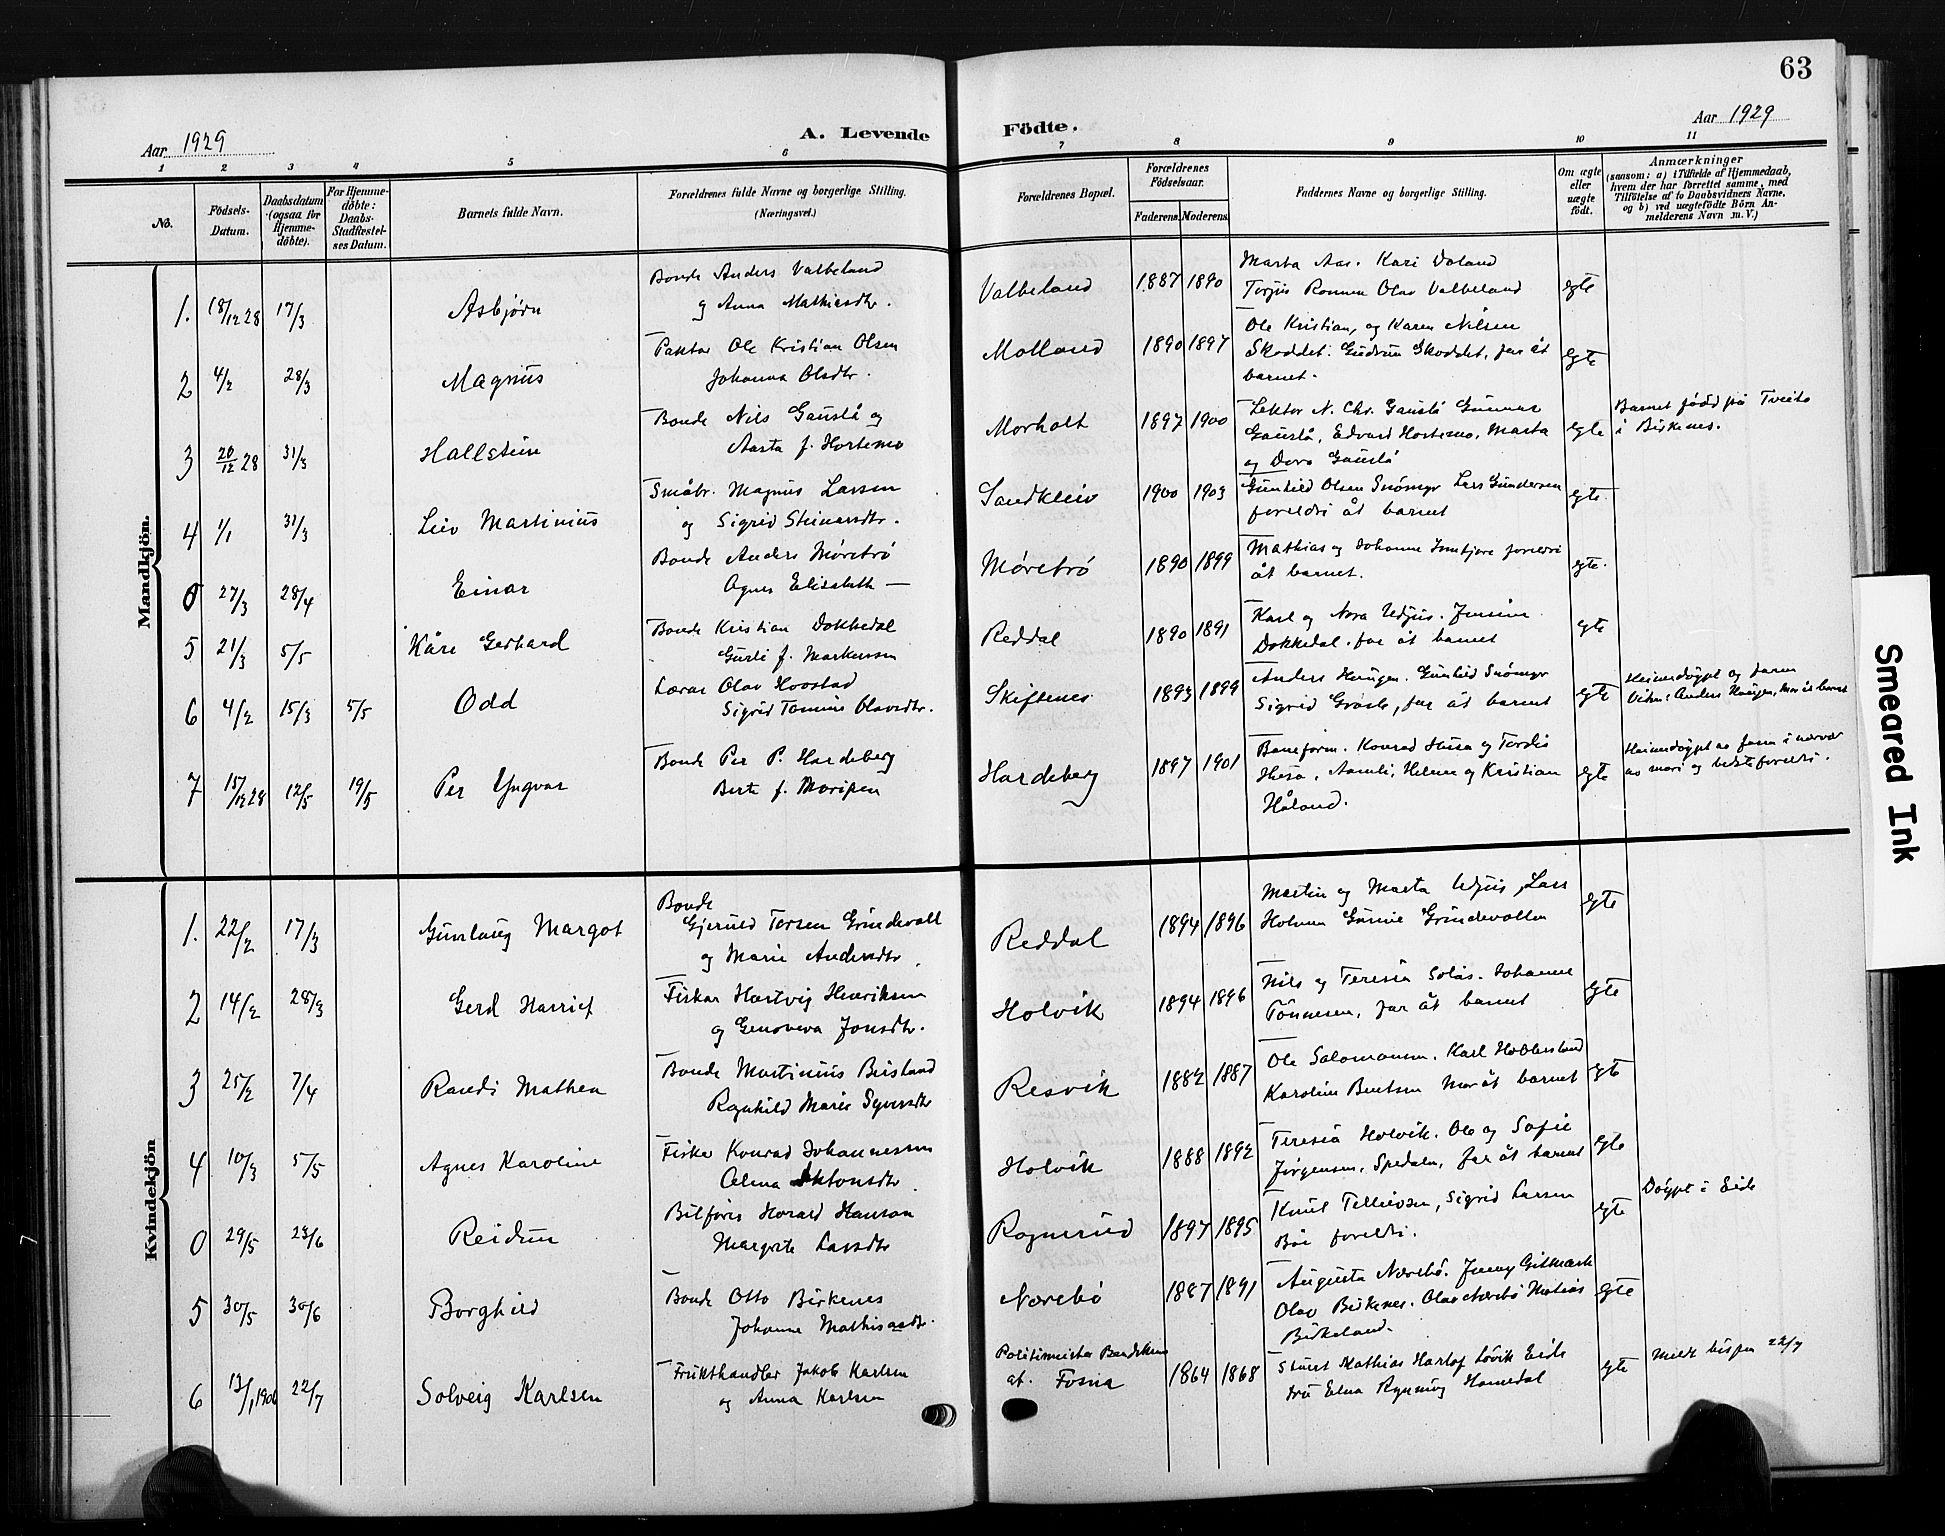 63
Aar 1929
A. Levende
Födte.
Aar 1929
1 2 3 4 5 6 7 8 9 10 11
No.
Födsels-Datum.
Daabsdatum (ogsaa for Hjemme-døbte).
For Hjemme-döbte: Daabs-Stadfæstel-ses Datum.
Barnets fulde Navn.
Forældrenes fulde Navne og borgerlige Stilling.
(Næringsvei.)
Forældrenes Bopæl.
Forældrenes Födselsaar.
Faderens. Moderens.
Faddernes Navne og borgerlige Stilling.
Om ægte eller uægte födt.
Anmærkninger
(saasom: a) i Tilfælde af Hjemmedaab,
hvem der har forrettet samme, med
Tilföielse af to Daabsvidners Navne,
og b) ved uægtefödte Börn An-
melderens Navn m. V.)
Mandkjön.
1. 18/12 28 17/3 Asbjørn
Bonde Anders Valbeland
og Anna Mathiesdtr.
Valbeland 1887 1890
Marta Aas. Kari Doland
Torjus Olav Valbeland
egte
2 4/2 28/3 Magnus
Ole Kristian Olsen
Johanna Olsdtr.
Molland 1890 1897
Ole Kristian, og Karen Nilsen
Skoddet. Gudrun Skoddet, far åt
barnet.
egte
3 20/12 28 31/3 Hallstein
Bonde Nils Gauslå og
Aasta f. Hortemo
Morholt 1897 1900
Lektor N. Chr. Gauslå Gunnar
Gauslå, Edvard Hortemo, Marta
og Dora Gauslå
egte
Barnet född på Tveite
i Birkenes.
4 1/1 31/3 Leiv Martinius
Småbr. Magnus Larsen
og Sigrid Steinarsdtr.
Sandkleiv 1900 1903
Gunhild Olsen Snömyr Lars Gundersen
foreldri åt barnet
egte
0 27/3 28/4 Einar
Bonde Anders Møretrö
Agnes Elisabeth —
Møretrö 1890 1899
Mathias og Johanne foreldri
åt barnet.
egte.
5 21/3 5/5 Kåre Gerhard
Bonde Kristian Dokkedal
Gurli f. Markussen
Reddal 1890 1891
Karl og Nora Udjus. Jensine
Dokkedal. far åt barnet
egte
6 4/2 15/3 5/5 Odd
Lærar Olav Hovstad
Sigrid Tomine Olavsdtr.
Skiftenes 1893 1899
Anders Haugen. Gunhild Snömyr
Sigrid far åt barnet
egte
Heimedöypt av faren
Vitne: Anders Haugen, mor åt barnet
7 15/12 28 12/5 19/5 Per Yngvar
Bonde Per P. Hardeberg
Berte f. Moripen
Hardeberg 1897 1901
Baneform. Konrad Husa og Tordis
Husa, Aamli, Helene og Kristian
Håland.
egte
Heimedöypt av faren i nærvær
av mori og besteforeldri.
Kvindekjön
1. 22/2 17/3 Gunlaug Margot
Bonde
Gjeruld Torsen Grindevoll
og Marie Andersdtr.
Reddal 1894 1896
Martin og Marta Udjus, Lars
Holmen Gunnie Grindevollen
egte
2 14/2 28/3 Gerd Harriet
Fiskar Hartvig Henriksen
og Genoveva Jonsdtr.
Holvik 1894 1896
Nils og Teresia Solås. Johanne
Tönnesen, far åt barnet
egte
3 25/2 7/4 Randi Mathea
Bonde Martinius Birkeland
Ragnhild Marie Syversdtr
Resvik 1882 1887
Ole Salomonsen. Karl Hobbersland
Karoline Bentsen Mor åt barnet
egte
4 10/3 5/5 Agnes Karoline
Fiskar Konrad Johannessen
Alma Antonsdtr.
Holvik 1888 1892
Teresia Holvik. Ole og Sofie
Jörgensen, Spedalen, far åt barnet
egte
0 29/5 23/6 Reidun
Bilförer Harald Hanson
Margrete Larsdtr
Rognerud 1897 1895
Knut Tellevsen, Sigrid Larsen
Böe foreldri.
egte
Döypt i Eide
5 30/5 30/6 Borghild
Bonde Otto Birkenes
Johanne Mathisdtr.
Nærebö 1887 1891
Augusta Nærebö. Jenny Gitmark
Olav Birkenes. Olav Nærebö Matias
Birkeland.
egte
6 13/1 1906 22/7 Solveig Karlsen
Frukthandler Jakob Karlsen
og Anna Karlsen
Politimeister
at. Fosna 1864 1868
Mathias Hartof Lövik Eide
fru Elna Ryenning Homedal
egte
Meldt bispen 22/7
Smeared Ink